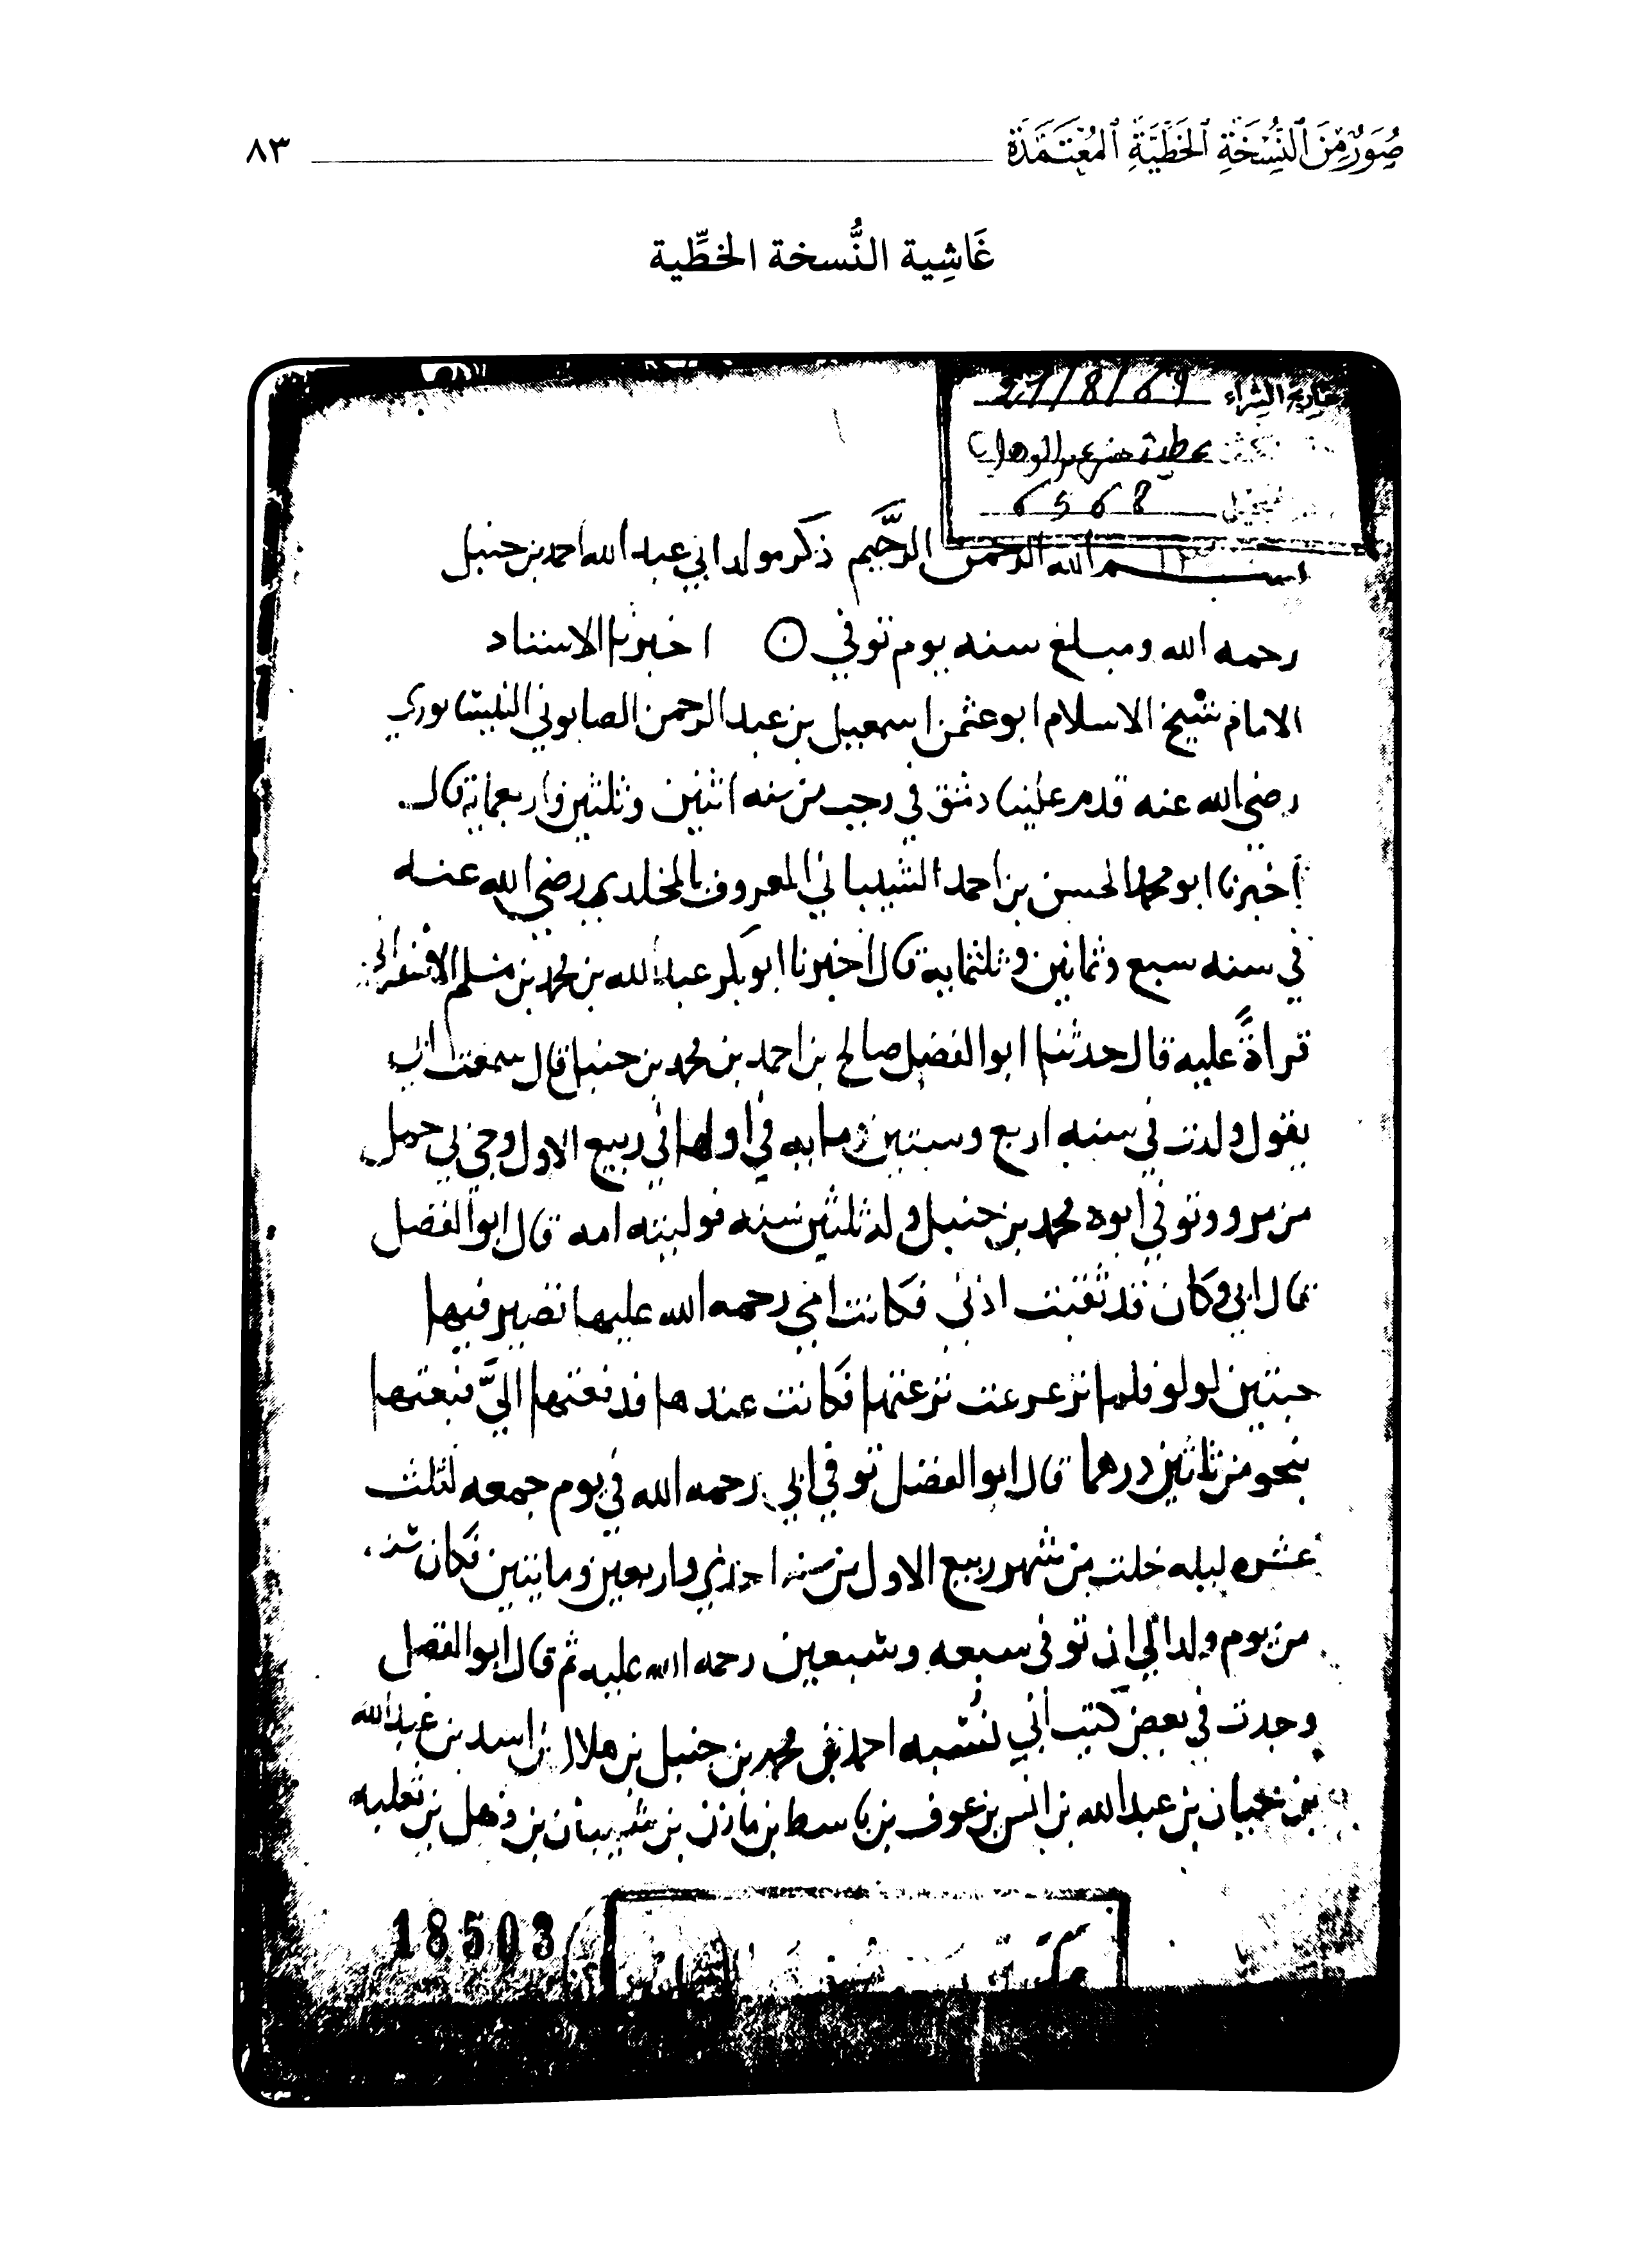 صُوَرٌ مِّنَ ٱلنُّسْخَةِ ٱلْخَطِّيَّةِ ٱلْمُعْتَمَدَةِ
٨٣
غَاشِية النُّسخة الخطِّية
تاريخ الشراء 27/8/69
عطية عبد الوهاب
6568
بسم الله الرحمن الرَّحيم ذكر مولد ابي عبد الله احمد بن حنبل
رحمه الله ومبلغ سنه يوم توفي اخبرنا الاستاد
الامام شيخ الاسلام ابو عثمن اسمعيل بن عبد الرحمن الصابوني النيسابوري
رضي الله عنه قدم علينا دمشق في رجب من سنه اثنين وثلثين واربعماية قال
أخبرنا ابو محمد الحسن بن احمد الشيباني المعروف بالمخلدي رضي الله عنه
في سنه سبع وثمانين وثلثماية قال اخبرنا ابو بكر عبد الله بن محمد بن مسلم الاسفرائي
قراةً عليه قال حدثنا ابو الفضل صالح بن احمد بن محمد بن حنبل قال سمعت ابي
يقول ولدت في سنه اربع وستين ومايه في اولها في ربيع الاول وجي بي حمل
من مرو وتوفي ابوه محمد بن حنبل وله ثلثين سنه فوليته امه قال ابو الفضل
قال ابي وكان قد ثقبت اذني فكانت امي رحمه الله عليها تصير فيها
حبتين لولو فلما ترعرعت نزعتها فكانت عندها فدفعتها اليَّ فبعتها
بنحو من ثلاثين درهما قال ابو الفضل توفي ابي رحمه الله في يوم جمعه لثلث
عشره ليله خلت من شهر ربيع الاول من سنه احدي واربعين ومايتين فكان سنه
من يوم ولد الي ان توفى سبعه وسبعين رحمه الله عليه ثم قال ابو الفضل
وجدت في بعض كتب ابي نسبه احمد بن محمد بن حنبل بن هلال بن اسد بن عبد الله
بن حيان بن عبد الله بن انس بن عوف بن قاسط بن مازن بن شيبان بن ذهل بن ثعلبه
18503